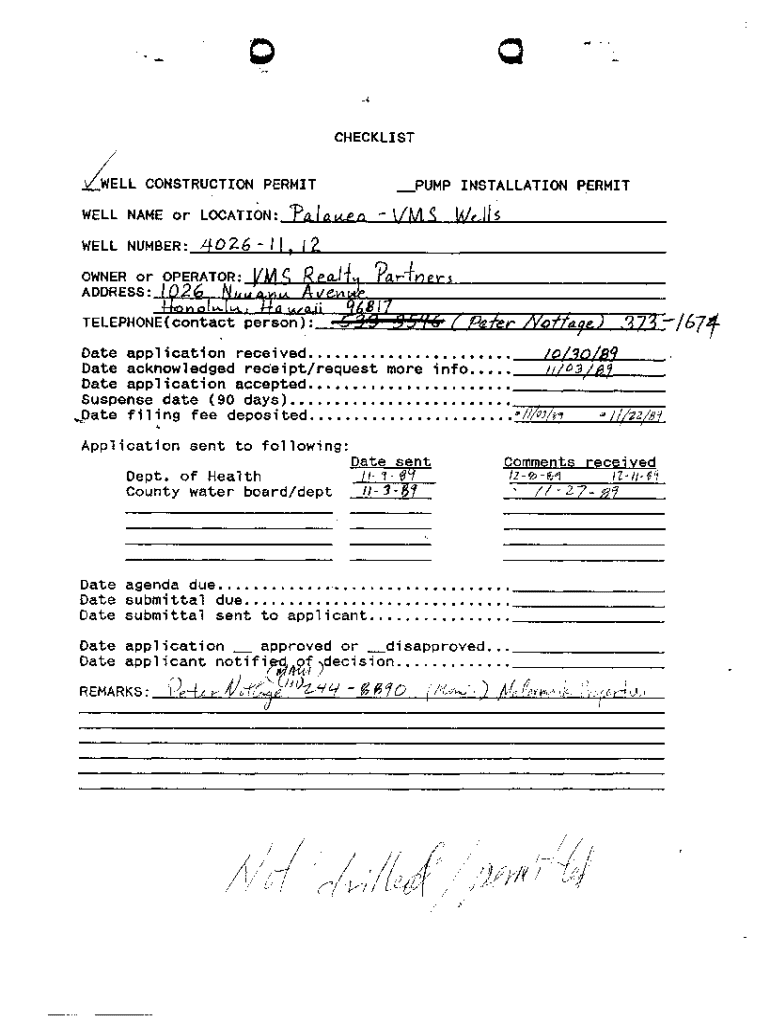 CHECKLIST
✓ WELL CONSTRUCTION PERMIT __PUMP INSTALLATION PERMIT
WELL NAME or LOCATION: Palauea - VMS Wells
WELL NUMBER: 4026-11, 12
OWNER or OPERATOR: VMS Realty Partners
ADDRESS: 1026 Nuuanu Avenue
Honolulu, Hawaii 96817
TELEPHONE(contact person): (Peter Nottage) 373-1674
Date application received....................... 10/30/89
Date acknowledged receipt/request more info..... 11/03/89
Date application accepted.......................
Suspense date (90 days).........................
Date filing fee deposited....................... 11/03/89 11/22/89
Application sent to following:
Date sent Comments received
Dept. of Health 11-9-89 12-8-89 12-11-89
County water board/dept 11-3-89 11-27-89
Date agenda due.................................
Date submittal due..............................
Date submittal sent to applicant................
Date application __ approved or __disapproved...
Date applicant notified of decision.............
(MAUI)
REMARKS: Peter Nottage 244-8890
Not drilled / permitted